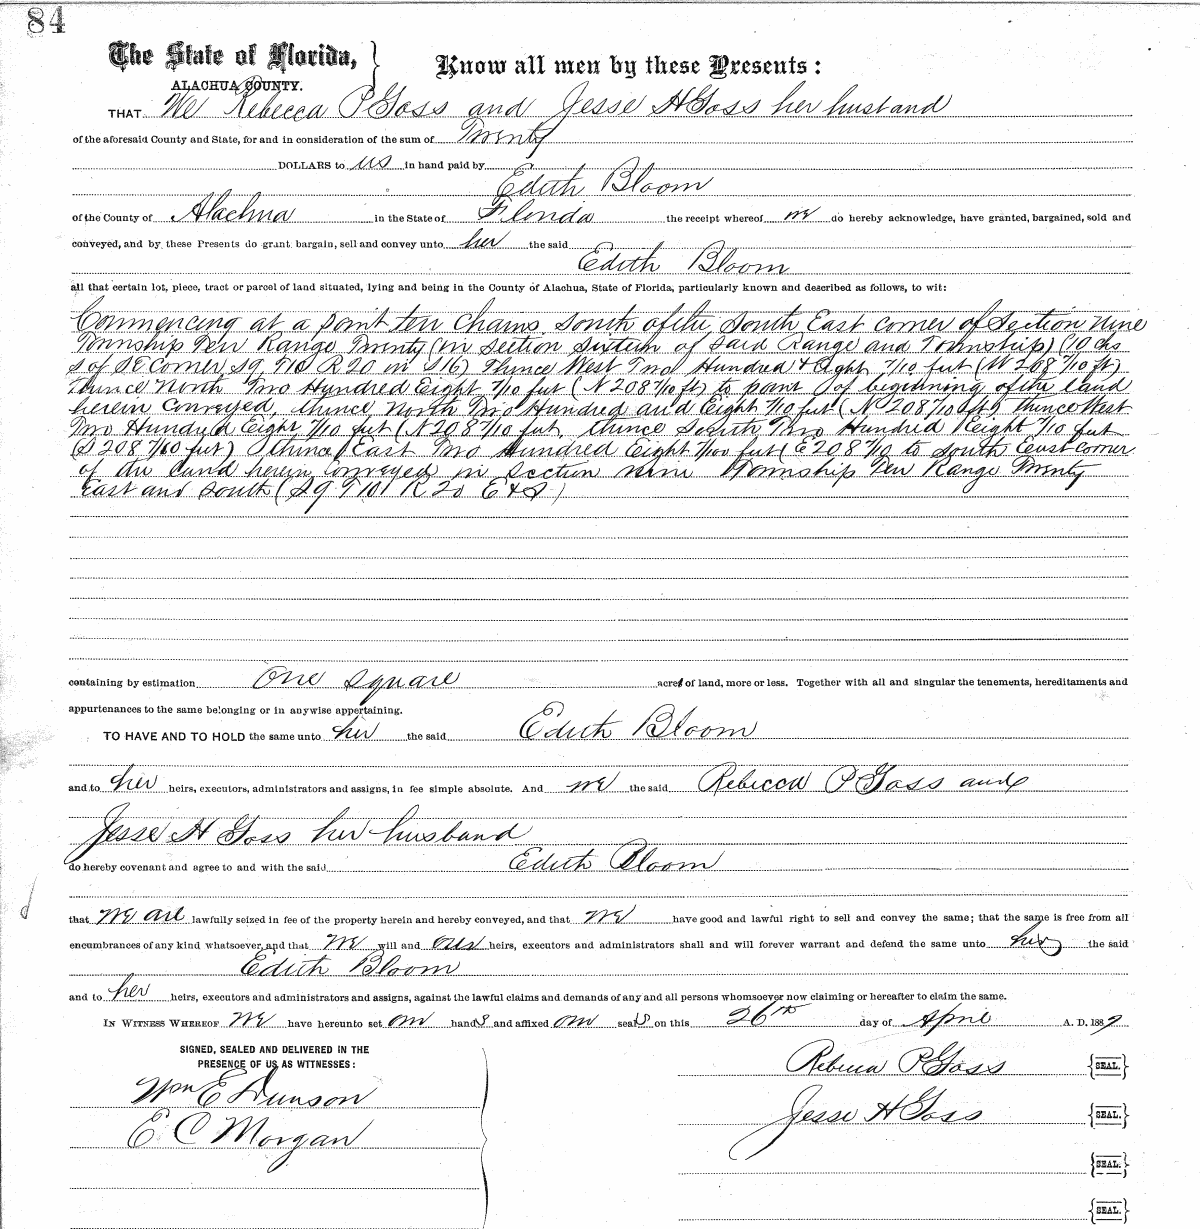 84
The State of Florida,
ALACHUA COUNTY.
Know all men by these Presents:
THAT We Rebecca P Goss and Jesse H Goss her husband
of the aforesaid County and State, for and in consideration of the sum of Twenty
DOLLARS to us in hand paid by
Edith Bloom
of the County of Alachua in the State of Florida the receipt whereof we do hereby acknowledge, have granted, bargained, sold and
conveyed, and by these Presents do grant, bargain, sell and convey unto her the said
Edith Bloom
all that certain lot, piece, tract or parcel of land situated, lying and being in the County of Alachua, State of Florida, particularly known and described as follows, to wit:
Commencing at a point ten chains south of the South East corner of Section Nine
Township Ten Range Twenty (in section sixteen of said Range and Township) (10 chs
S of SE Corner S9 T10 R20 in S16) Thence West Two Hundred & Eight 7/10 feet (W 208 7/10 ft)
thence North Two Hundred Eight 7/10 feet (N 208 7/10 ft) to point of beginning of the land
herein conveyed, thence North Two Hundred and Eight 7/10 feet (N 208 7/10 ft) thence West
Two Hundred Eight 7/10 feet (N 208 7/10 feet, thence South Two Hundred Eight 7/10 feet
(S 208 7/10 feet) thence East Two Hundred Eight 7/100 feet (E 208 7/10 to south East corner
of the land herein conveyed in section nine Township Ten Range Twenty
East and South (S9 T10 R20 E & S)
containing by estimation One square acre of land, more or less. Together with all and singular the tenements, hereditaments and
appurtenances to the same belonging or in anywise appertaining.
TO HAVE AND TO HOLD the same unto her the said Edith Bloom
and to her heirs, executors, administrators and assigns, in fee simple absolute. And we the said Rebecca P Goss and
Jesse H Goss her husband
do hereby covenant and agree to and with the said Edith Bloom
that we are lawfully seized in fee of the property herein and hereby conveyed, and that we have good and lawful right to sell and convey the same; that the same is free from all
encumbrances of any kind whatsoever, and that we will and our heirs, executors and administrators shall and will forever warrant and defend the same unto her the said
Edith Bloom
and to her heirs, executors and administrators and assigns, against the lawful claims and demands of any and all persons whomsoever now claiming or hereafter to claim the same.
IN WITNESS WHEREOF we have hereunto set our hands and affixed our seals on this 26th day of April A. D. 1889
SIGNED, SEALED AND DELIVERED IN THE
PRESENCE OF US AS WITNESSES:
Rebecca P Goss {SEAL.}
Wm E Dunson
Jesse H Goss {SEAL.}
E C Morgan
{SEAL.}
{SEAL.}